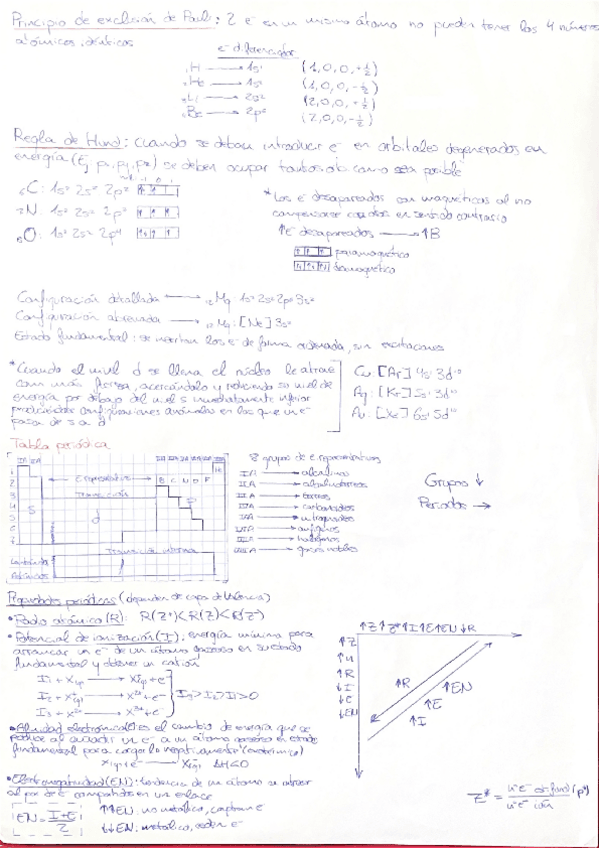 Principio de exclusión de Pauli: 2 e⁻ en un mismo átomo no pueden tener los 4 números
atómicos idénticos
e⁻ diferenciador
₁H → 1s¹ (1,0,0,+½)
₂He → 1s² (1,0,0,-½)
₃Li → 2s¹ (2,0,0,+½)
(2,0,0,-½)
Regla de Hund: Cuando se deban introducir e⁻ en orbitales degenerados en
energía (Ej, px, py, pz) se deben ocupar tantos orb como sea posible
₆C: 1s² 2s² 2p²
₇N: 1s² 2s² 2p³
₈O: 1s² 2s² 2p⁴
* Los e⁻ desapareados son magnéticos al no
compensarse con otros en sentido contrario
↑e⁻ desapareados → ↑B
paramagnético
diamagnético
Configuración detallada → ₁₂Mg 1s² 2s² 2p⁶ 3s²
Configuración abreviada → ₁₂Mg: [Ne] 3s²
Estado fundamental: se meten los e⁻ de forma ordenada, sin excitaciones
* Cuando el nivel d se llena el núcleo le atrae
con más fuerza, acercándolo y reduciendo su nivel de
energía por debajo del nivel s inmediatamente inferior
produciéndose configuraciones anómalas en las que un e⁻
pasa de s a d
Cu: [Ar] 4s¹ 3d¹⁰
Ag: [Kr] 5s¹ 4d¹⁰
Au: [Xe] 6s¹ 5d¹⁰
Tabla periódica
IA IIA IIIA IVA VA VIA VIIA
1
2 E representativos B C N O F
3 Transición
4
5 s d P
6
7
Transición interna
Lantánidos
Actínidos
8 grupos de e representativos
IA → alcalinos
IIA → alcalinotérreos
IIIA → térreos
IVA → carbonoideos
VA → nitrogenoideos
VIA → anfígenos
VIIA → halógenos
VIIIA → gases nobles
Grupos ↓
Periodos →
Propiedades periódicas (dependen de capa de valencia)
• Radio atómico (R): R(Z⁺)<R(Z)<R(Z⁻)
• Potencial de ionización (I), energía mínima para
arrancar un e⁻ de un átomo gaseoso en su estado
fundamental y obtener un catión
I₁ + X(g) → X⁺(g) + e⁻
I₂ + X⁺(g) → X²⁺ + e⁻
I₃ + X²⁺ → X³⁺ + e⁻
I₃>I₂>I₁>0
• Afinidad electrónica(E) es el cambio de energía que se
produce al añadir un e⁻ a un átomo gaseoso en estado
fundamental para cargarlo negativamente (exotérmico)
X(g) + e⁻ → X⁻(g) ΔH<0
• Electronegatividad (EN): tendencia de un átomo a atraer
al par de e⁻ compartidos en un enlace
EN = I+E / 2
↑↑EN: no metálico, captan e⁻
↓↓EN: metálico, ceden e⁻
↑Z ↑Z* ↑I ↑E ↑EN ↓R
↑Z
↑n
↑R
↓I
↓E
↓EN
↑R
↑EN
↑E
↑I